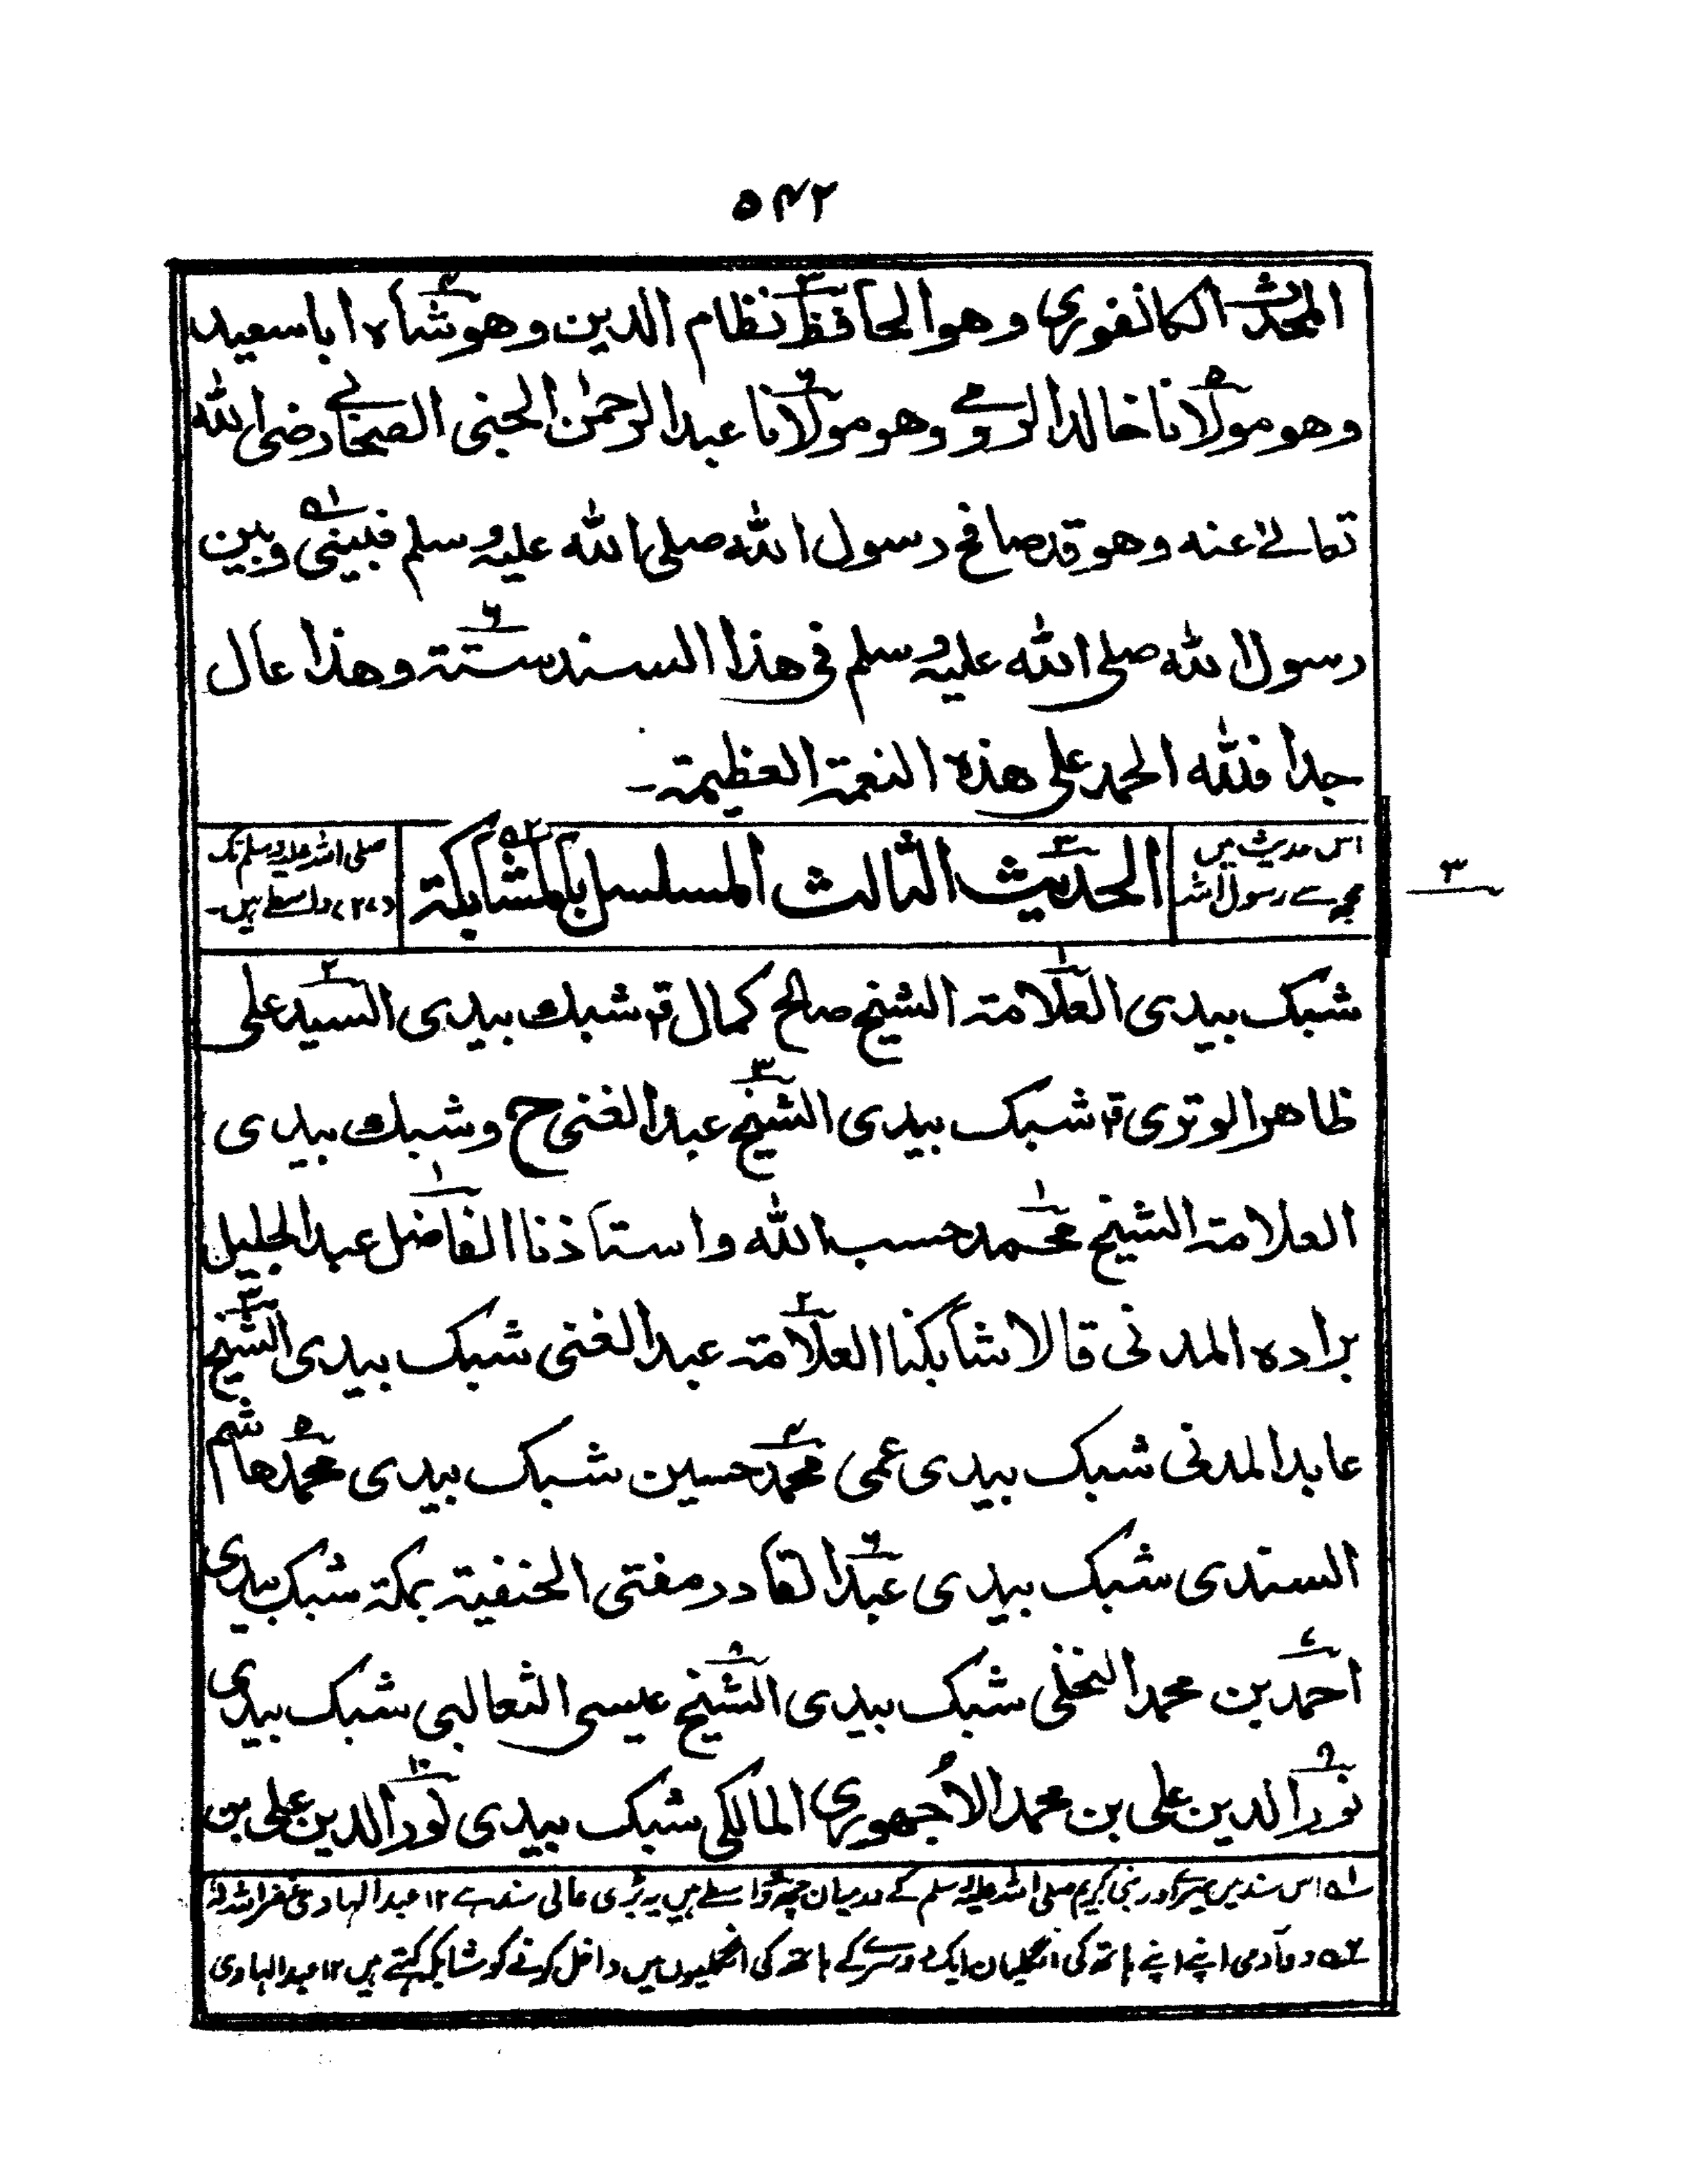 ۵۴۲
المحدث الکانفوری وهو الحافظ نظام الدین وهو شاه ابا سعید
وهو مولانا خالد الرومی وهو مولانا عبد الرحمٰن الجنی الصحابی رضی الله
تعالےٰ عنه وهو قد صافح رسول الله صلی الله علیه وسلم فبینی وبین
رسول الله صلی الله علیه وسلم فی هذا السند ستة وهذا عال
جدا فلله الحمد علی هذه النعمة العظیمة۔
اس حدیث میں
مجھ سے رسول اللہ
الحدیث الثالث المسلسل بالمشابکة
صلی اللہ علیہ وسلم تک
(۲۷) واسطے ہیں۔
۳
شبک بیدی العلامة الشیخ صالح کمال قال شبک بیدی السید علی
ظاهر الوتری قال شبک بیدی الشیخ عبد الغنی ح وشبک بیدی
العلامة الشیخ محمد حسب الله واستاذنا الفاضل عبد الجلیل
براده المدنی قالا شابکنا العلامة عبد الغنی شبک بیدی الشیخ
عابد المدنی شبک بیدی عمی محمد حسین شبک بیدی محمد هاشم
السندی شبک بیدی عبد القادر مفتی الحنفیة بمکة شبک بیدی
احمد بن محمد النخلی شبک بیدی الشیخ عیسی الثعالبی شبک بیدی
نور الدین علی بن محمد الاُجهوری المالکی شبک بیدی نور الدین علی بن
۱ے اس سند میں میرے اور نبی کریم صلی اللہ علیہ وسلم کے درمیان چھ واسطے ہیں یہ بڑی عالی سند ہے ۱۲ عبد الہادی غفر اللہ لہٗ
۲ے دو آدمی اپنے اپنے ہاتھ کی انگلیاں ایک دوسرے کے ہاتھ کی انگلیوں میں داخل کرنے کو مشابکہ کہتے ہیں ۱۲ عبد الہادی